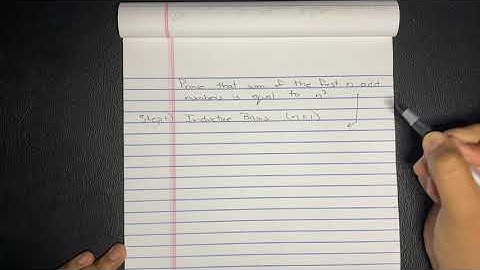 Prove that sum of the first n odd
numbers is equal to n²
Step 1) Inductive Basis (n=1)